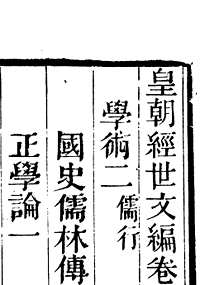 皇朝經世文編卷
學術二儒行
國史儒林傳
正學論一